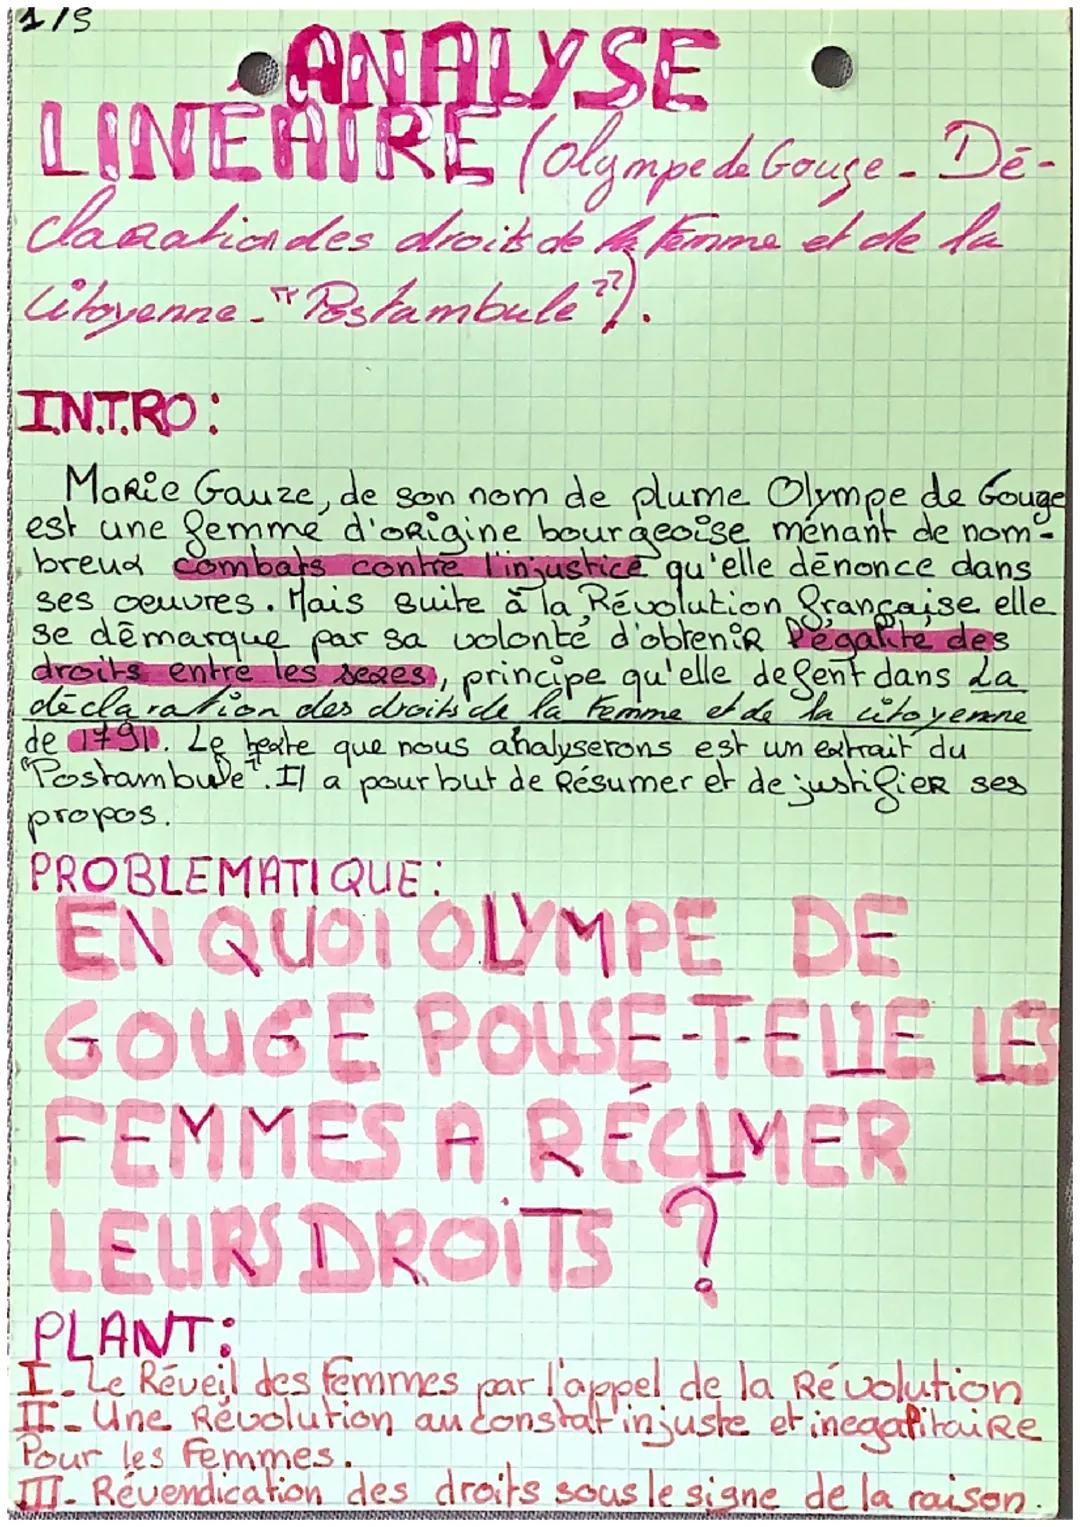 1/5
ANALYSE
LINÉAIRE (Olympe de Gouge - Dé-
claration des droits de la femme et de la
citoyenne - "Postambule").
INTRO:
Marie Gauze, de son nom de plume Olympe de Gouge
est une femme d'origine bourgeoise ménant de nom-
breux combats contre l'injustice qu'elle dénonce dans
ses oeuvres. Mais suite à la Révolution française elle
se démarque par sa volonté d'obtenir l'égalité des
droits entre les sexes, principe qu'elle defent dans La
déclaration des droits de la femme et de la citoyenne
de 1791. Le texte que nous analyserons est un extrait du
"Postambule". Il a pour but de Résumer et de justifier ses
propos.
PROBLEMATIQUE:
EN QUOI OLYMPE DE
GOUGE POUSE-T-ELLE LES
FEMMES A RÉCLMER
LEURS DROITS ?
PLANT:
I - Le Réveil des femmes par l'appel de la Révolution
II - Une Révolution au constat injuste et inegalitaire
Pour les Femmes.
III - Révendication des droits sous le signe de la raison.